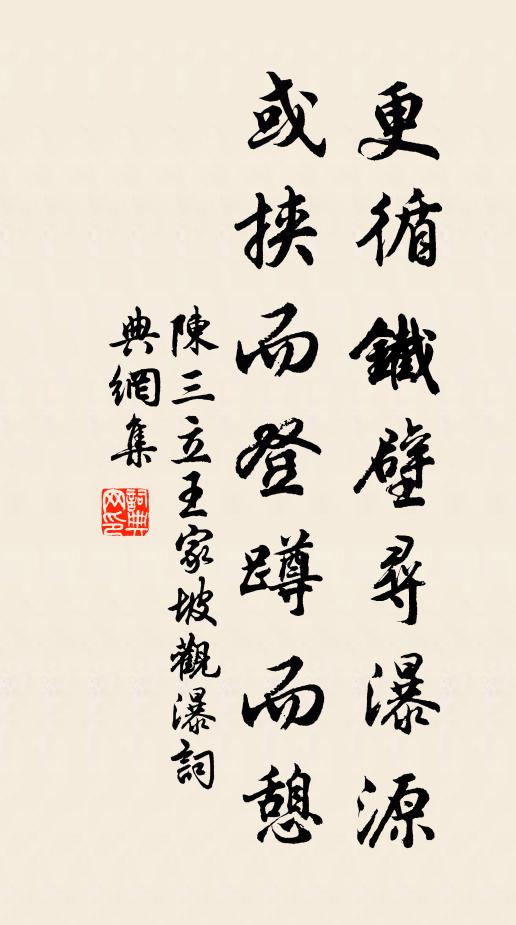 更循鐵壁尋瀑源
或挾而登蹲而憩
陳三立王家坡觀瀑詞
典網集
詞典網印